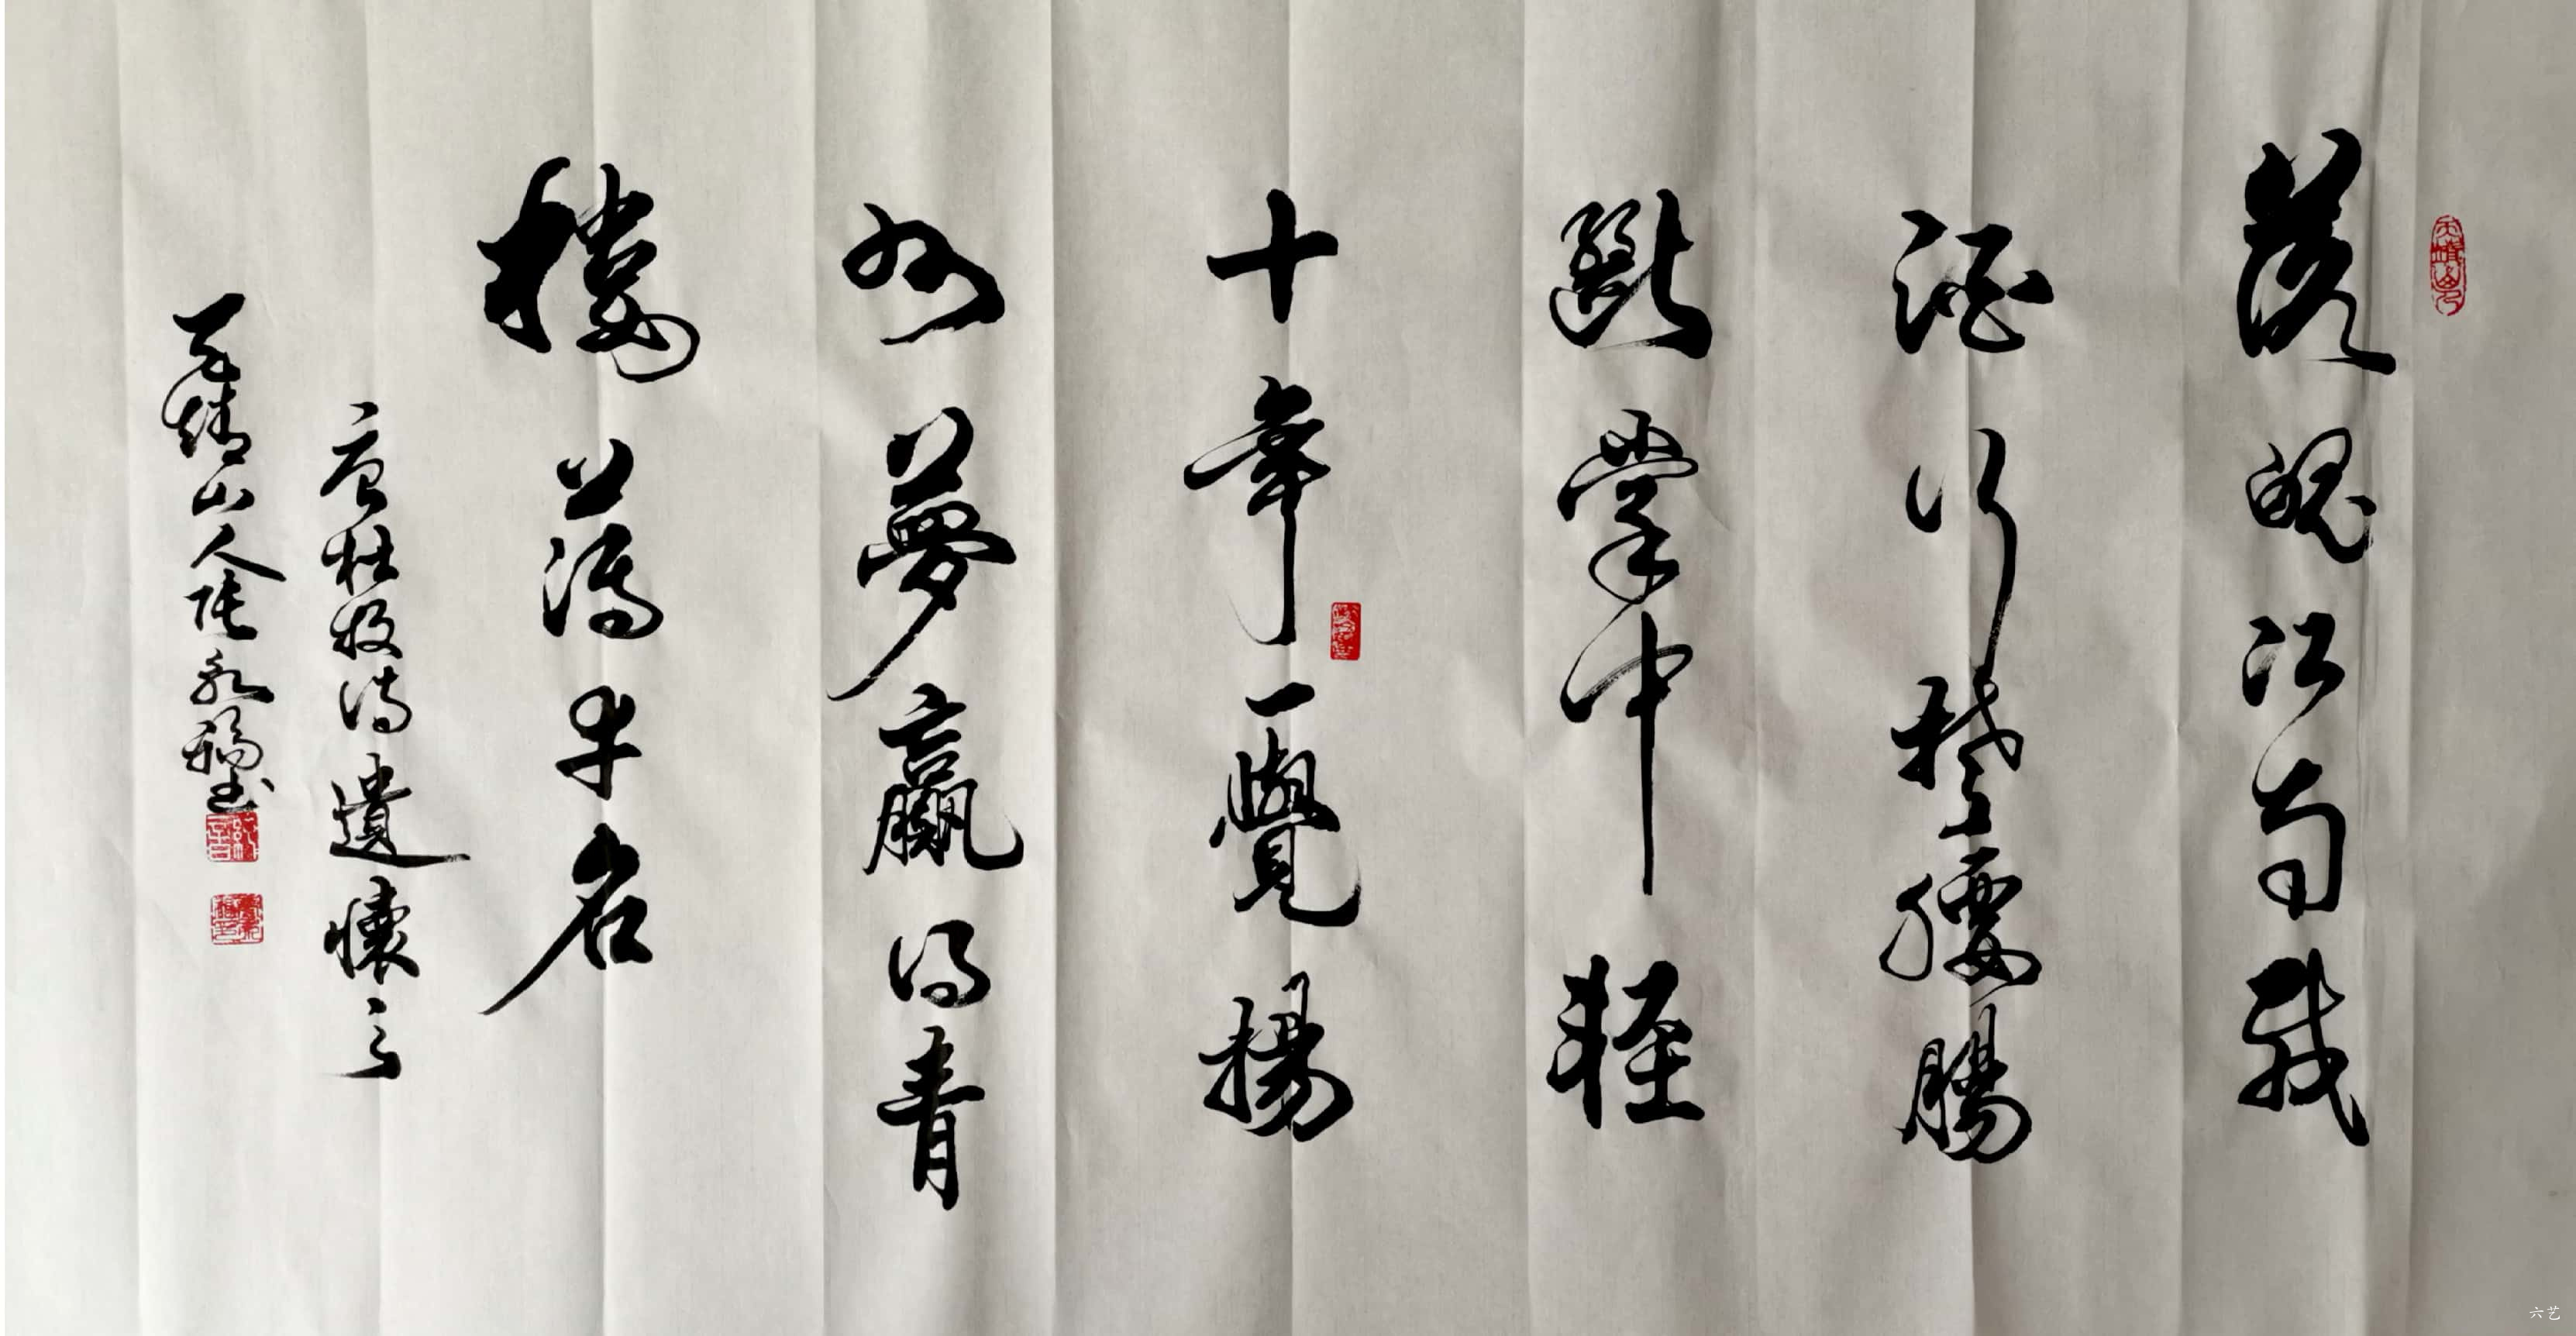 落魄江南載
酒行楚腰腸
斷掌中輕
十年一覺揚
州夢贏得青
樓薄幸名
唐杜牧詩遺懷
天靖山人張永福书
六艺